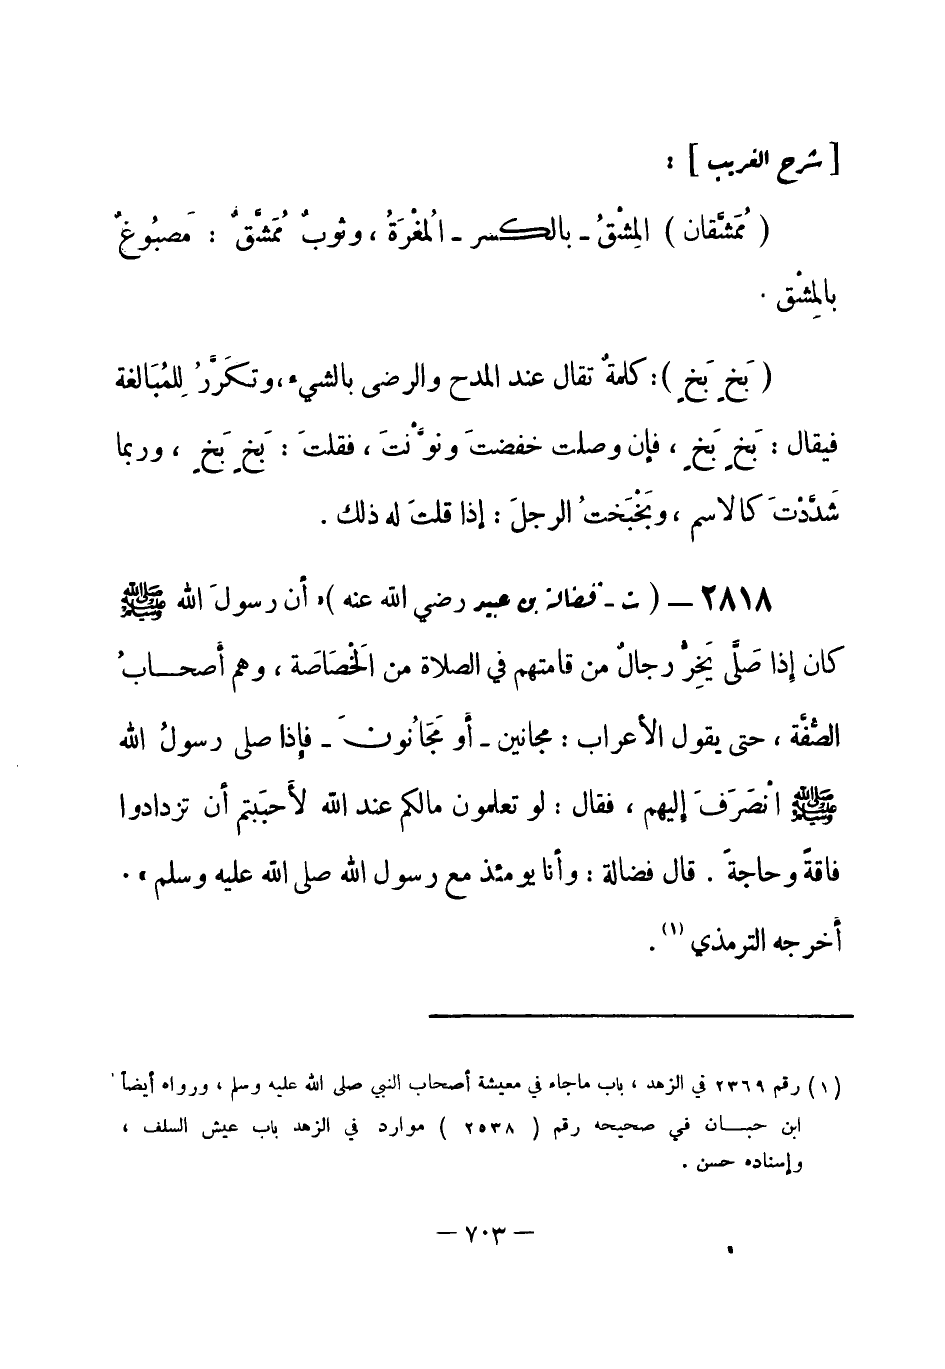 [ شرح الغريب ] :
( مُمَشَّقان ) المِشْقُ ـ بالكسر ـ المُغْرَةُ ، وثوبٌ مُمَشَّقٌ : مَصبُوغٌ
بالمِشْق .
( بَخٍ بَخٍ ) : كلمةٌ تقال عند المدح والرضى بالشيء ، وتكَرَّرُ لِلمُبَالغة
فيقال : بَخٍ بَخٍ ، فإن وصلت خفضتَ ونوَّنْتَ ، فقلتَ : بَخٍ بَخٍ ، وربما
شَدَّدْتَ كالاسم ، وبَخْبَختُ الرجلَ : إذا قلتَ له ذلك .
٢٨١٨ ـ ( ت ـ فضالة بن عبيد رضي الله عنه ) « أن رسولَ الله ﷺ
كان إذا صَلَّى يَخِرُّ رجالٌ من قامتهم في الصلاة من الخَصَاصَة ، وهم أصحابُ
الصُّفَّة ، حتى يقول الأعراب : مجانين ـ أو مَجَانُونَ ـ فإذا صلى رسولُ الله
ﷺ انْصَرَفَ إليهم ، فقال : لو تعلمون مالكم عند الله لأحبَبتم أن تزدادوا
فاقةً وحاجةً . قال فضالة : وأنا يومئذ مع رسول الله صلى الله عليه وسلم » .
أخرجه الترمذي (١) .
(١) رقم ٢٣٦٩ في الزهد ، باب ماجاء في معيشة أصحاب النبي صلى الله عليه وسلم ، ورواه أيضاً
ابن حبان في صحيحه رقم ( ٢٥٣٨ ) موارد في الزهد باب عيش السلف ،
وإسناده حسن .
— ٧٠٣ —